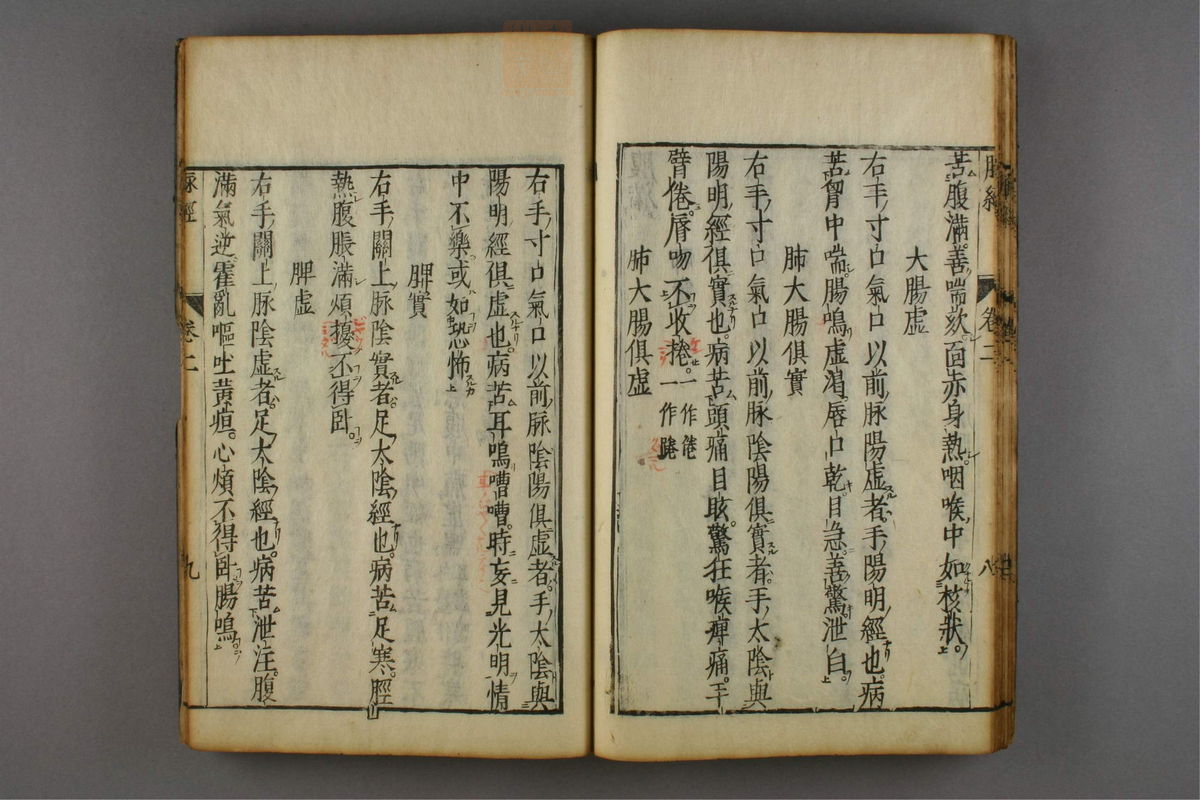 脉經 卷二 八
苦腹滿善喘欬面赤身熱咽喉中如核狀
大腸虛
右手寸口氣口以前脉陽虛者手陽明經也病
苦胷中喘腸鳴虛渴唇口乾目急善驚泄白
肺大腸俱實
右手寸口氣口以前脉陰陽俱實者手太陰與
陽明經俱實也病苦頭痛目眩驚狂喉痺痛手
臂惓唇吻不收捲一作惓一作
肺大腸俱虛
右手寸口氣口以前脉陰陽俱虛者手太陰與
陽明經俱虛也病苦耳鳴嘈嘈時妄見光明情
中不樂或如恐怖
脾實
右手關上脉陰實者足太陰經也病苦足寒脛
熱腹脹滿煩擾不得卧
脾虛
右手關上脉陰虛者足太陰經也病苦泄注腹
滿氣逆霍亂嘔吐黃疸心煩不得卧腸鳴
脉經 卷二 九